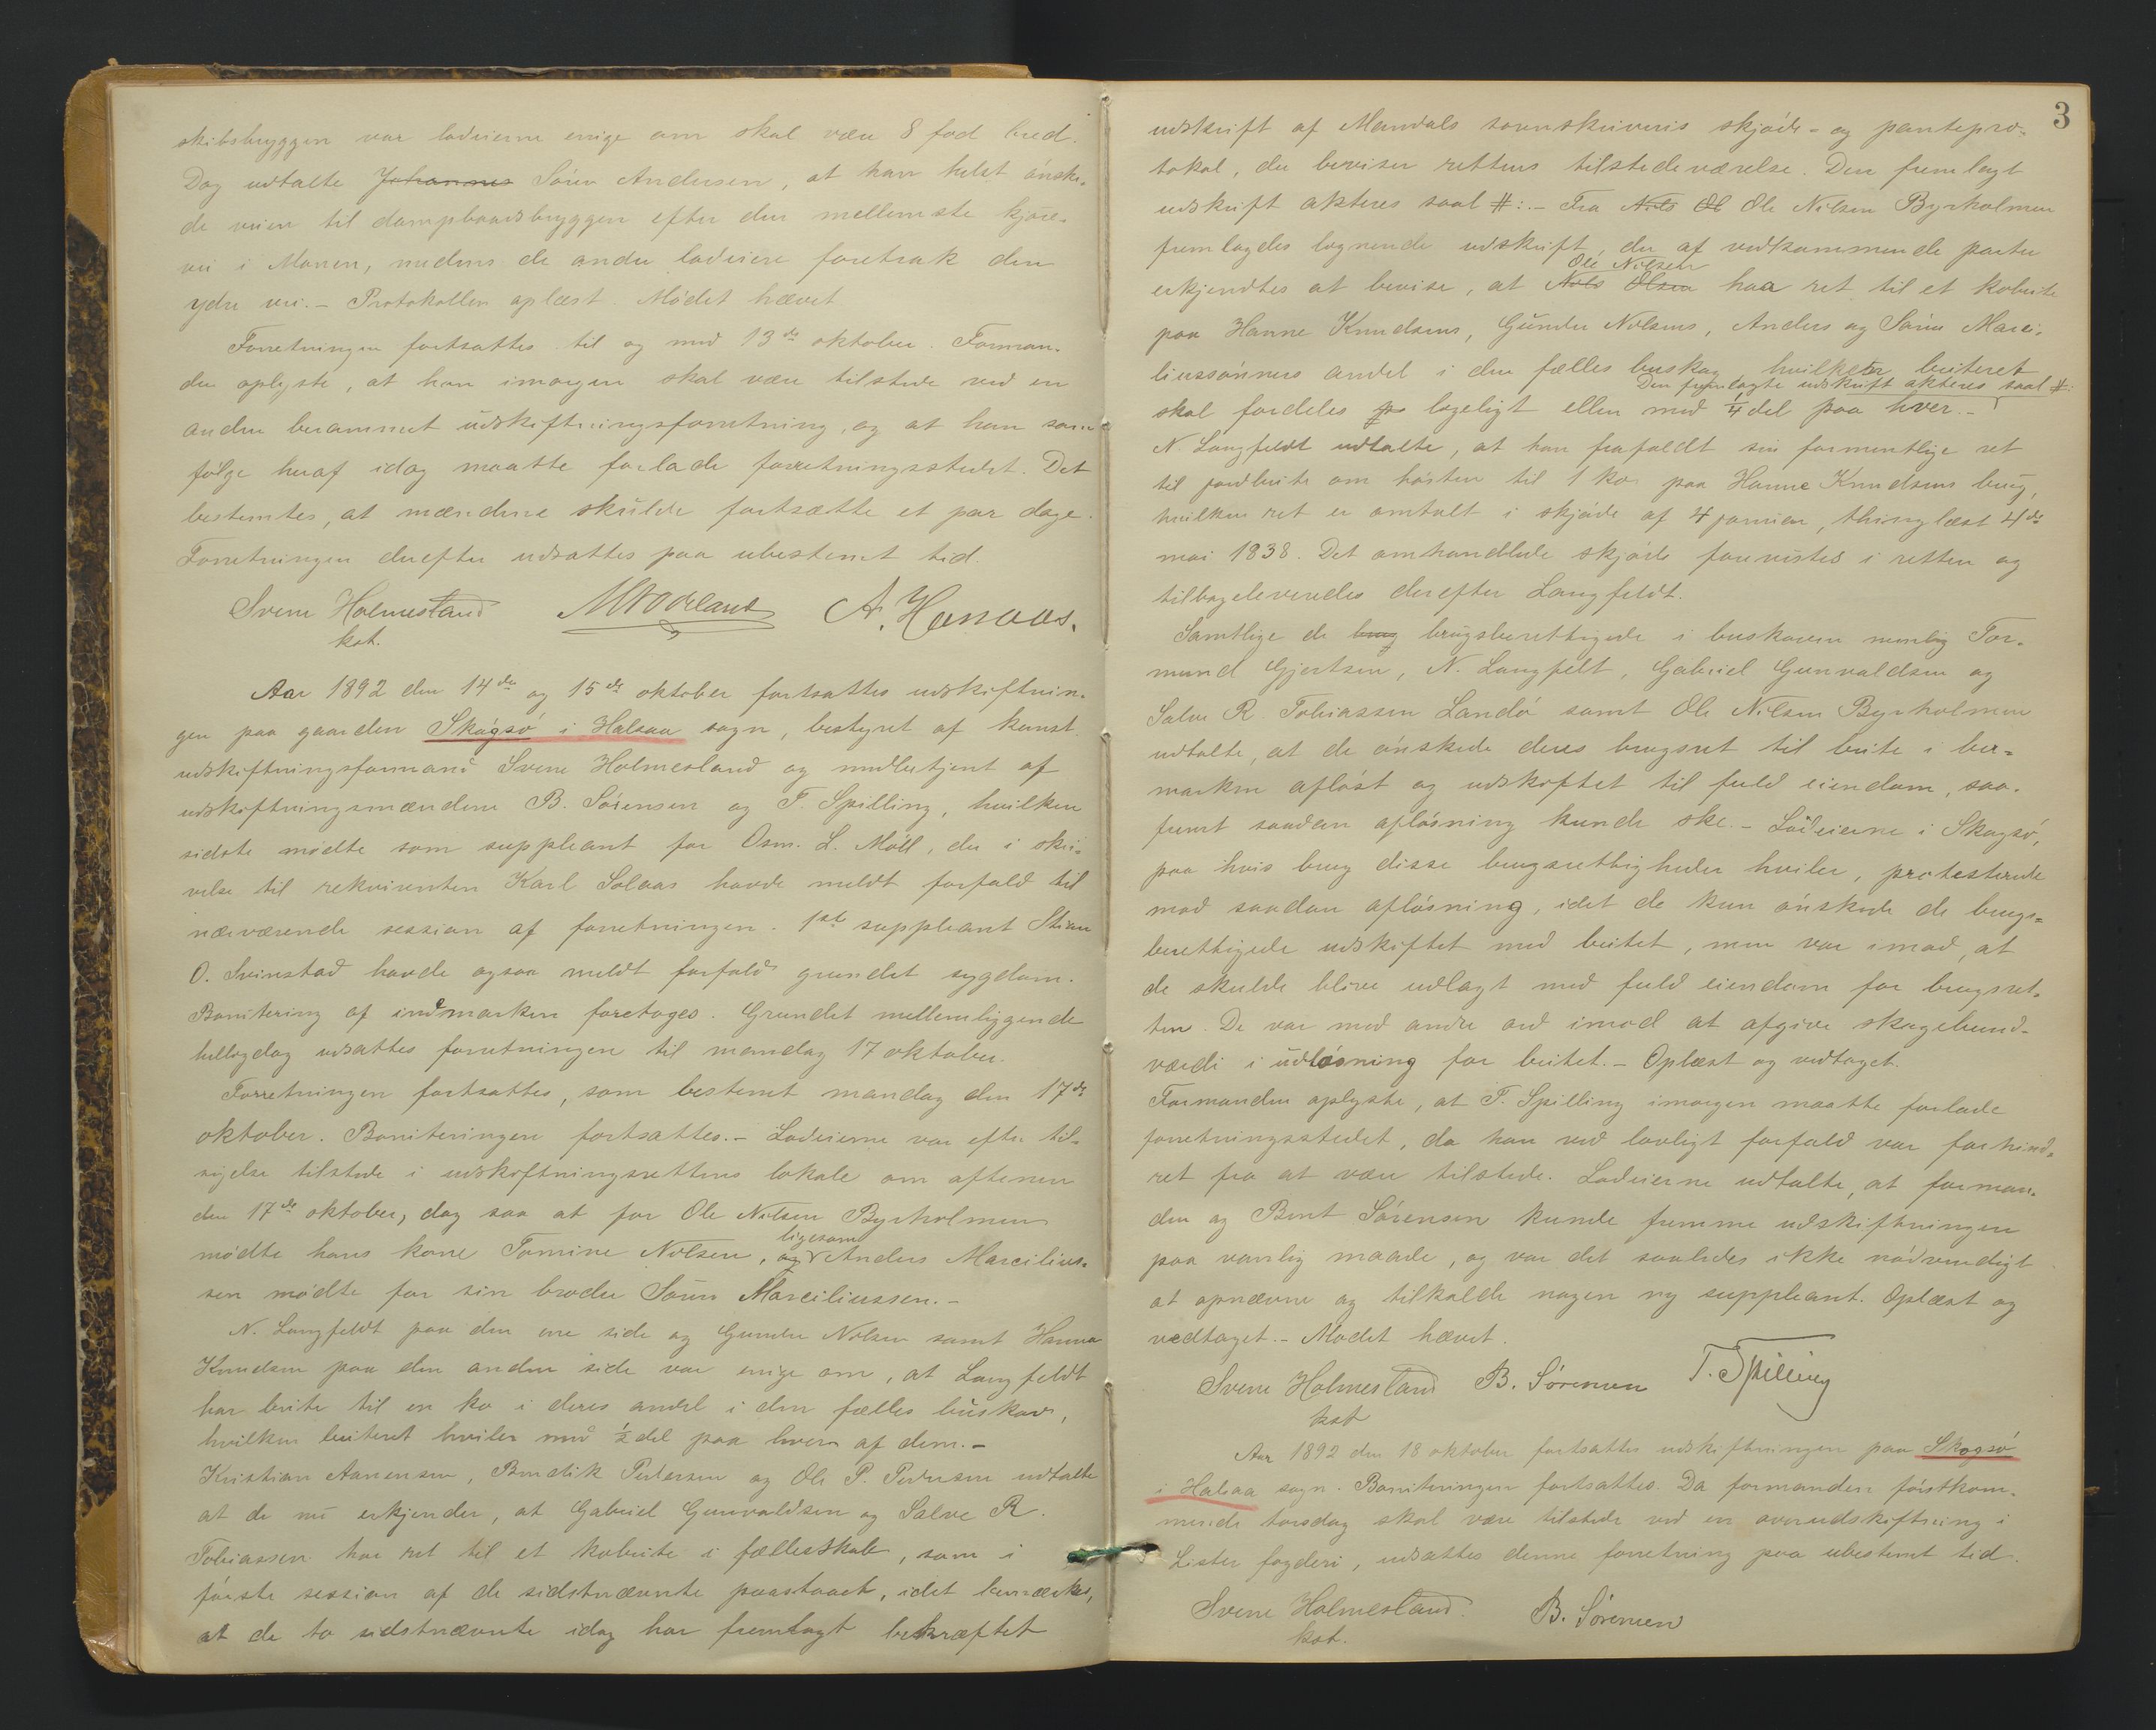 skibsbryggen var lodeierne enige om skal være 8 fod bred.
Dog udtalte Johannes Søren Andersen, at han helst ønske-
de veien til dampbaadsbryggen efter den mellemste kjøre-
vei i Monen, medens de andre lodeiere foretrak den
ydre vei. - Protokollen oplæst. Mødet hævet.
Forretningen fortsattes til og med 13de oktober. Forman-
den oplyste, at han imorgen skal være tilstede ved en
anden berammet udskiftningsforretning, og at han som
følge heraf idag maatte forlade forretningsstedet. Det
bestemtes, at mændene skulde fortsætte et par dage.
Forretningen derefter udsattes paa ubestemt tid.
Svene Holmesland A. Hananas.
kst.
Aar 1892 den 14de og 15de oktober fortsattes udskiftnin-
gen paa gaarden Skogsø i Halsaa sogn, bestyret af konst.
udskiftningsformand Svene Holmesland og medbetjent af
udskiftningsmændene B. Sørensen og T. Spilling, hvilken
sidste mødte som suppleant for Osm. L. Moll, der i skri-
velse til rekvirenten Karl Solaas havde meldt forfald til
nærværende session af forretningen. 1ste suppleant Stian
O. Svinstad havde ogsaa meldt forfald grundet sygdom.
Bonitering af indmarken foretoges. Grundet mellemliggende
helligdag udsattes forretningen til mandag 17 oktober.
Forretningen fortsattes, som bestemt mandag den 17de
oktober. Boniteringen fortsattes. - Lodeierne var efter til-
sigelse tilstede i udskiftningsrettens lokale om aftenen
den 17de oktober, dog saa at for Ole Nilsen Byrholmen
mødte hans kone Tomine Nilsen, og ligesom Anders Marcilius-
sen mødte for sin broder Søren Marciliussen. -
N. Langfeldt paa den ene side og Gunder Nilsen samt Hanna
Knudsen paa den anden side var enige om, at Langfeldt
har beite til en ko i deres andel i den fælles buskov,
hvilken beiteret hviler med ½ del paa hver af dem. -
Kristian Aanensen, Bendik Pedersen og Ole P. Pedersen udtalte
at de nu erkjender, at Gabriel Gunvaldsen og Salve R.
Tobiassen har ret til et kobeite i fællesskab, som i
første session af de sidstnævnte paastaaet, idet bemærkes,
at de to sidstnævnte idag har fremlagt bekræftet
3
udskrift af Mandals sorenskriveris skjøde- og pantepro-
tokol, der beviser rettens tilstedeværelse. Den fremlagt
udskrift akteres saal #: - Fra Nils Ol Ole Nilsen Byrholmen
fremlagdes lognende udskrift, der af vedkommende parter
erkjendtes at bevise, at Nils Olsen Ole Nilsen haa ret til et kobeite
paa Hanne Knudsens, Gunder Nilsens, Anders og Søren Marci-
liussønners andel i den fælles buskov, hvilken beiteret
skal fordeles pa logeligt eller med ¼ del paa hver. - Den fremlagte udskrift akteres saal #:
N. Langfeldt udtalte, at han frafaldt sin formentlige ret
til jordbeite om høsten til 1 ko paa Hanne Knudsens brug,
hvilken ret er omtalt i skjøde af 4 januar, thinglæst 4de
mai 1838. Det omhandlede skjøde forevistes i retten og
tilbageleveredes derefter Langfeldt.
Samtlige de brug brugsberettigede i buskoven nemlig Tor-
mund Gjertsen, N. Langfelt, Gabriel Gunvaldsen og
Salve R. Tobiassen Landø samt Ole Nilsen Byrholmen
udtalte, at de ønskede deres brugsret til beite i ber-
marken afløst og udskiftet til fuld eiendom, saa-
fremt saadan afløsning kunde ske. - Lodeierne i Skogsø,
paa hvis brug disse brugsrettigheder hviler, protesterede
mod saadan afløsning, idet de kun ønskede de brugs-
berettigede udskiftet med beitet, men var imod, at
de skulde blive udlagt med fuld eiendom for brugsret-
ten. De var med andre ord imod at afgive skogebund-
værdi i udløsning for beitet. - Oplæst og vedtaget.
Formanden oplyste, at T. Spilling imorgen maatte forlade
forretningsstedet, da han ved lovligt forfald var forhind-
ret fra at være tilstede. Lodeierne udtalte, at forman-
den og Bent Sørensen kunde fremme udskiftningen
paa vanlig maade, og var det saaledes ikke nødvendigt
at opnævne og tilkalde nogen ny suppleant. Oplæst og
vedtaget. - Mødet hævet.
Svene Holmesland B. Sørensen T. Spilling
kst
Aar 1892 den 18 oktober fortsattes udskiftningen paa Skogsø
i Halsaa sogn. Boniteringen fortsattes. Da formanden førstkom-
mende torsdag skal være tilstede ved en overudskiftning i
Lister fogderi, udsættes denne forretning paa ubestemt tid.
Svene Holmesland. B. Sørensen
kst.